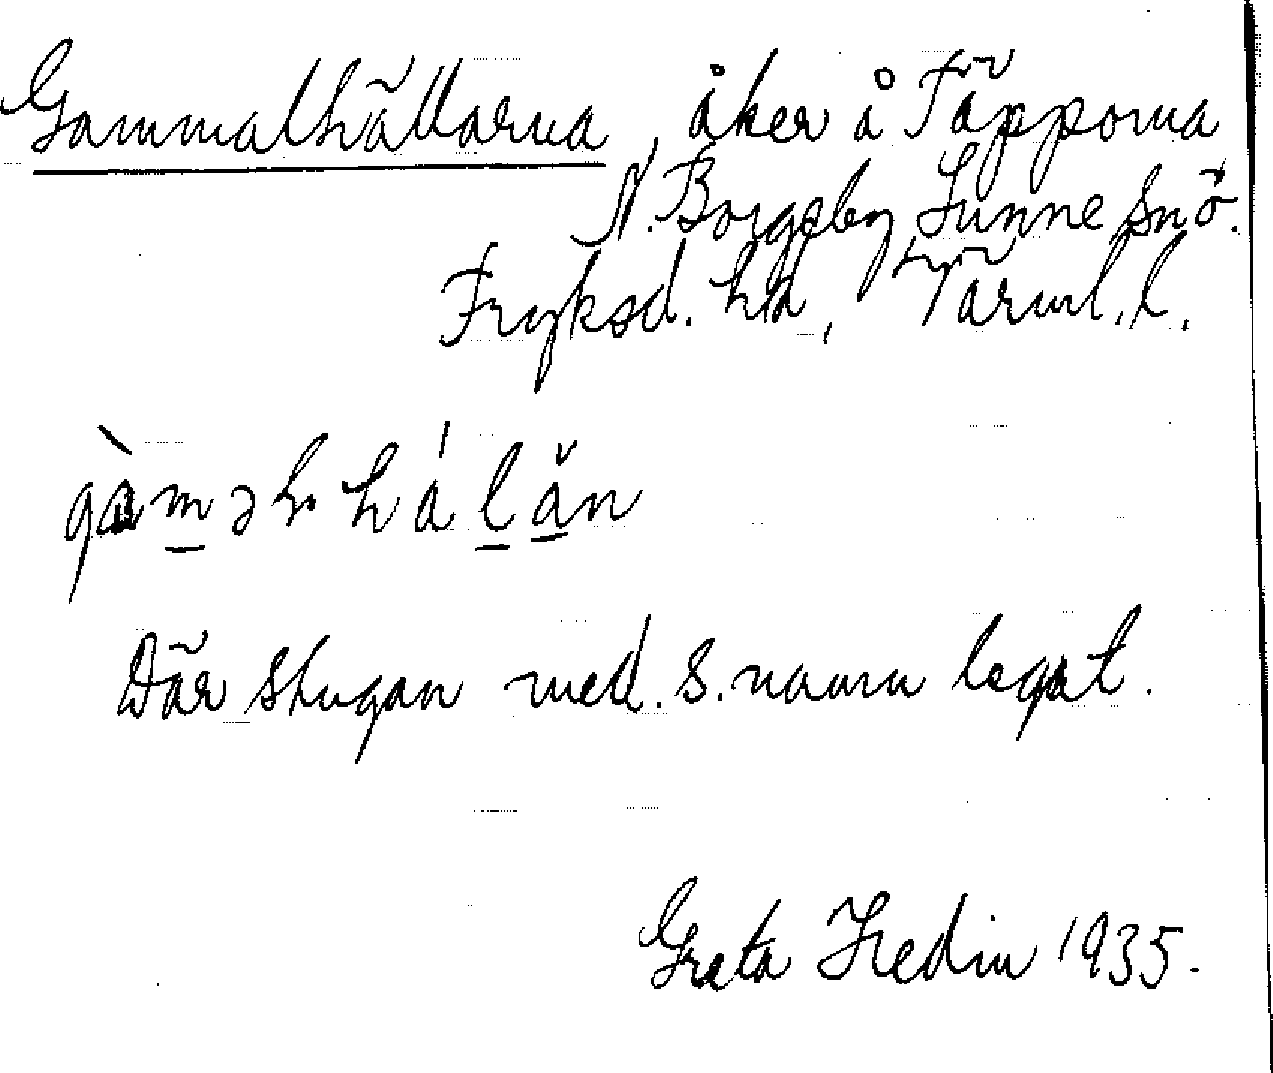 Gammalhällarna, åker å Täpporna
N. Borgeby, Sunne snö.
Fryksd. hd, Värml. l.
gàməlhálăn
Där stugan med. s. namn legat.
Greta Hedin 1935.